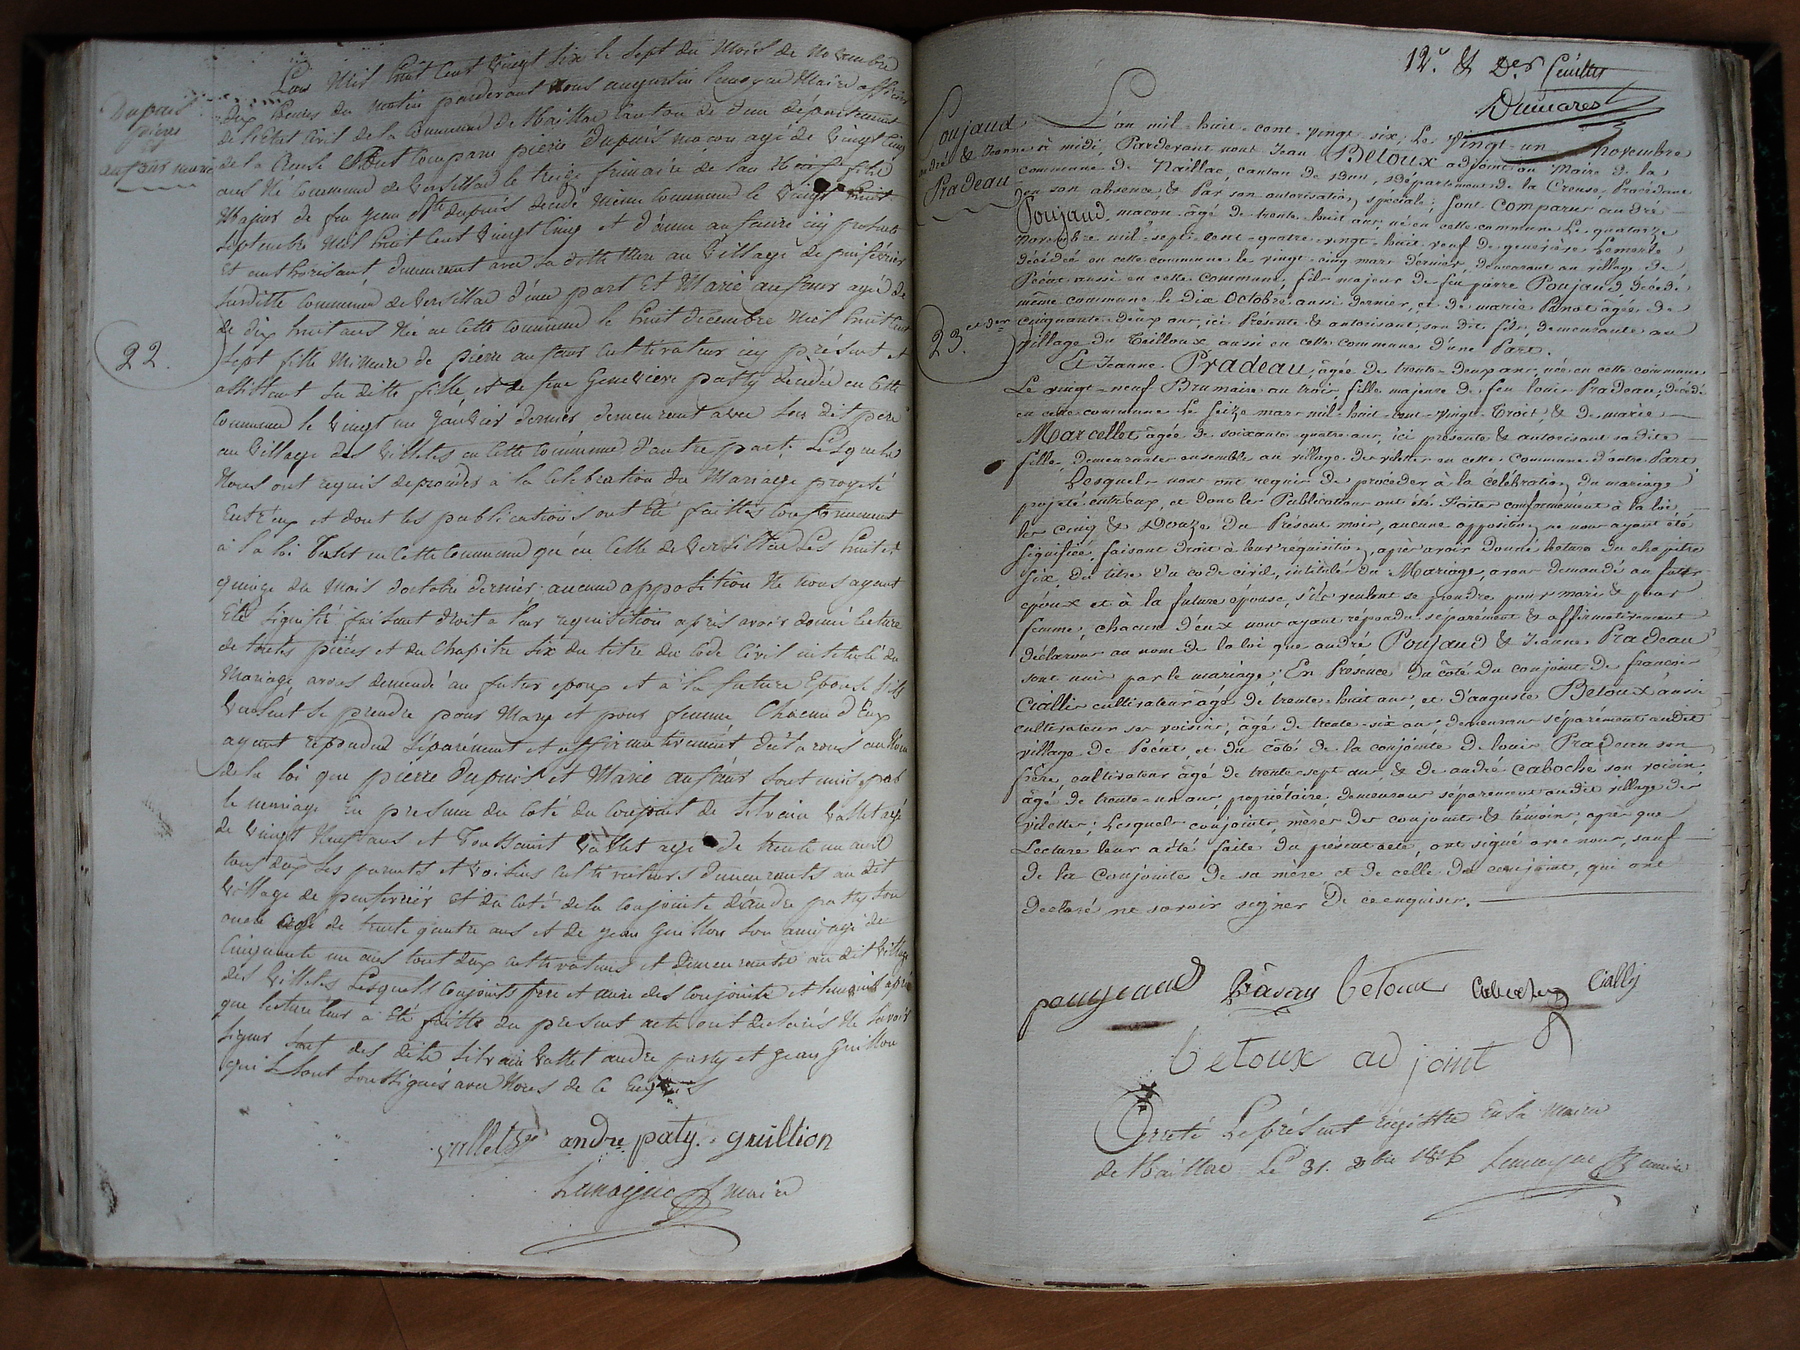 Dupuis
pierre
aufaure marie
22.
L'an Mil huit Cent Vingt Six le Sept du Mois de Novembre
dix heures du matin pardevant Nous augustin Lemoyne Maire officier
de l'état Civil de la Commune de Naillac Canton de dun département
de la Creuse Est Comparu pierre Dupuis maçon agé de Vingt Cinq
ans Né Commune de Versillac le treize frimaire de l'an
Majeur de feu jean Bte dupuis décédé même Commune le Vingt huit
Septembre Mil huit Cent Vingt Cinq et d'anne aufaure icy présente
Et authorisant demeurant avec sa ditte Mère au Village de puiferrier
Surditte Commune de Versillac d'une part Et Marie aufaure agée de
de dix huit ans Née en Cette Commune le huit décembre Mil huit Cent
Sept fille Mineure de pierre aufaure Cultivateur icy présent et
assistant Sa ditte fille, et de feue Geneviève patty décédée en Cette
Commune le Vingt un Janvier dernier, demeurant avec Son dit père
au Village des Villetes en Cette Commune d'autre part. Lesquels
Nous ont requis de procéder à la Célébration du Mariage projeté
Entr'eux et dont les publications ont Eté faittes Conformément
à la loi tant en Cette Commune qu'en Celle de Versillac Les huit et
quinze du Mois d'octobre dernier. aucune opposition Ne nous ayant
Eté Signifié faisant droit à leur requisition après avoir donné lecture
de toutes pièces et du Chapitre Six du titre du Code Civil intitulé du
Mariage, avons demandé au futur epoux et à la future Epouse S'ils
Veulent Se prendre pour Mary et pour femme, Chacun d'Eux
ayant répondu Séparément et affirmativement déclarons au Nom
de la loi que pierre Dupuis et Marie aufaur Sont unis par
le mariage En présence du Coté du Conjoint de Silvain Vallet agé
de Vingt Neuf ans et Toussaint Vallet agé de trente un ans
tous deux Ses parents et Voisins Cultivateurs demeurants au dit
Village de puiferrier Et du Coté de la Conjointe d'andre patty Son
oncle agé de trente quatre ans et de jean Guillon Son ami agé de
Cinquante un ans tout deux Cultivateurs et demeurants au dit Village
des Villetes Lesquels Conjoints père et mère des Conjoints et temoins après
que lecture leur a Eté faitte du présent acte ont déclarés Ne Savoir
Signer Sauf des dits Silvain Vallet andre patty et jean Guillon
qui Se Sont Soussignés avec Nous de Ce Enquis
vallet andre paty. guillion
Lemoyne maire
12e. & Der. feuillet
Dumarest
Poujaud
andré & Jeanne
Pradeau
23. et der
L'an mil-huit-cent-vingt-six, Le vingt-un Novembre
à midi, Pardevant nous Jean BETOUX adjoint au Maire de la
commune de Naillac, canton de Dun, département de la Creuse, Procédant
en son absence & Par son autorisation spéciale; sont comparus andré
Poujaud, maçon âgé de trente-huit ans, né en cette commune le quatorze
Novembre mil-sept-cent-quatre-vingt-huit, veuf de geneviève Lemerle
décédée en cette commune le vingt-cinq mars dernier, demeurant au village de
Pécut aussi en cette commune, fils majeur de feu pierre Poujaud, décédé
même commune le dix Octobre aussi dernier, et de marie Panot âgée de
cinquante-deux ans, ici Présente & autorisant son dit fils demeurante au
village du Teilloux aussi en cette commune d'une Part.
Et Jeanne Pradeau, âgée de trente-deux ans, née en cette commune
Le vingt-neuf Brumaire an trois, fille majeure de feu louis Pradeau, décédé
en cette commune le seize mars mil-huit-cent-vingt-trois, & de marie
Marcellet âgée de soixante-quatre ans, ici présente & autorisant sa dite
fille, demeurantes ensemble au village des viletes en cette commune d'autre Part
Lesquels nous ont requis de procéder à la célébration du mariage
projeté entr'eux, et dont les Publications ont été Faites conformément à la loi,
les cinq & Douze du Présent mois, aucune opposition ne nous ayant été
signifiée, faisant droit à leur réquisition, après avoir donné lecture du chapitre
Six du titre du code civil, intitulé du Mariage, avons demandé au futur
époux et à la future épouse, s'ils veulent se prendre pour mari & pour
femme; chacun d'eux nous ayant répondu séparément & affirmativement
déclarons au nom de la loi que andré Poujaud & Jeanne Pradeau
sont unis par le mariage. En Présence du côté du conjoint de françois
Ciallis cultivateur âgé de trente-huit ans, et d'auguste Betoux aussi
cultivateur ses voisins, âgé de trente-six ans, demeurans séparément audit
village de Pécut, et du côté de la conjointe de louis Pradeau son
frère, cultivateur âgé de trente-sept ans, & de andré Caboché son voisin,
âgé de trente-un ans, propriétaire, demeurans séparément au dit village des
viletes; Lesquels conjoints, mères des conjoints & témoins, après que
Lecture leur a été faite du présent acte, ont signé avec nous, sauf
de la Conjointe de sa mère et de celle du conjoint, qui ont
Déclaré ne savoir signer de ce enquises.
poujeaud betoux Cially
betoux adjoint
Arreté Le présent régistre En la mairie
de Naillac Le 31. xbre 1826 Lemoyne maire